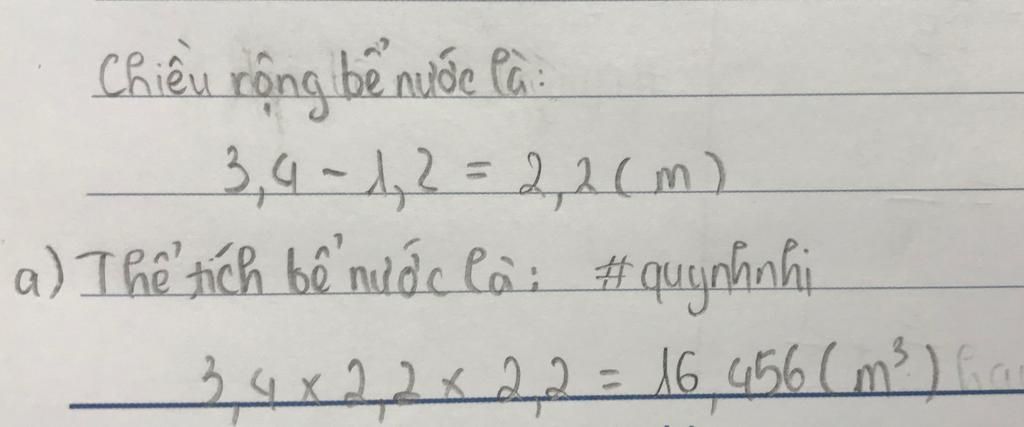 Chiều rộng bể nước là:
3,4 - 1,2 = 2,2 (m)
a) Thể tích bể nước là: #quynhnhi
3,4 x 2,2 x 2,2 = 16,456 (m³)